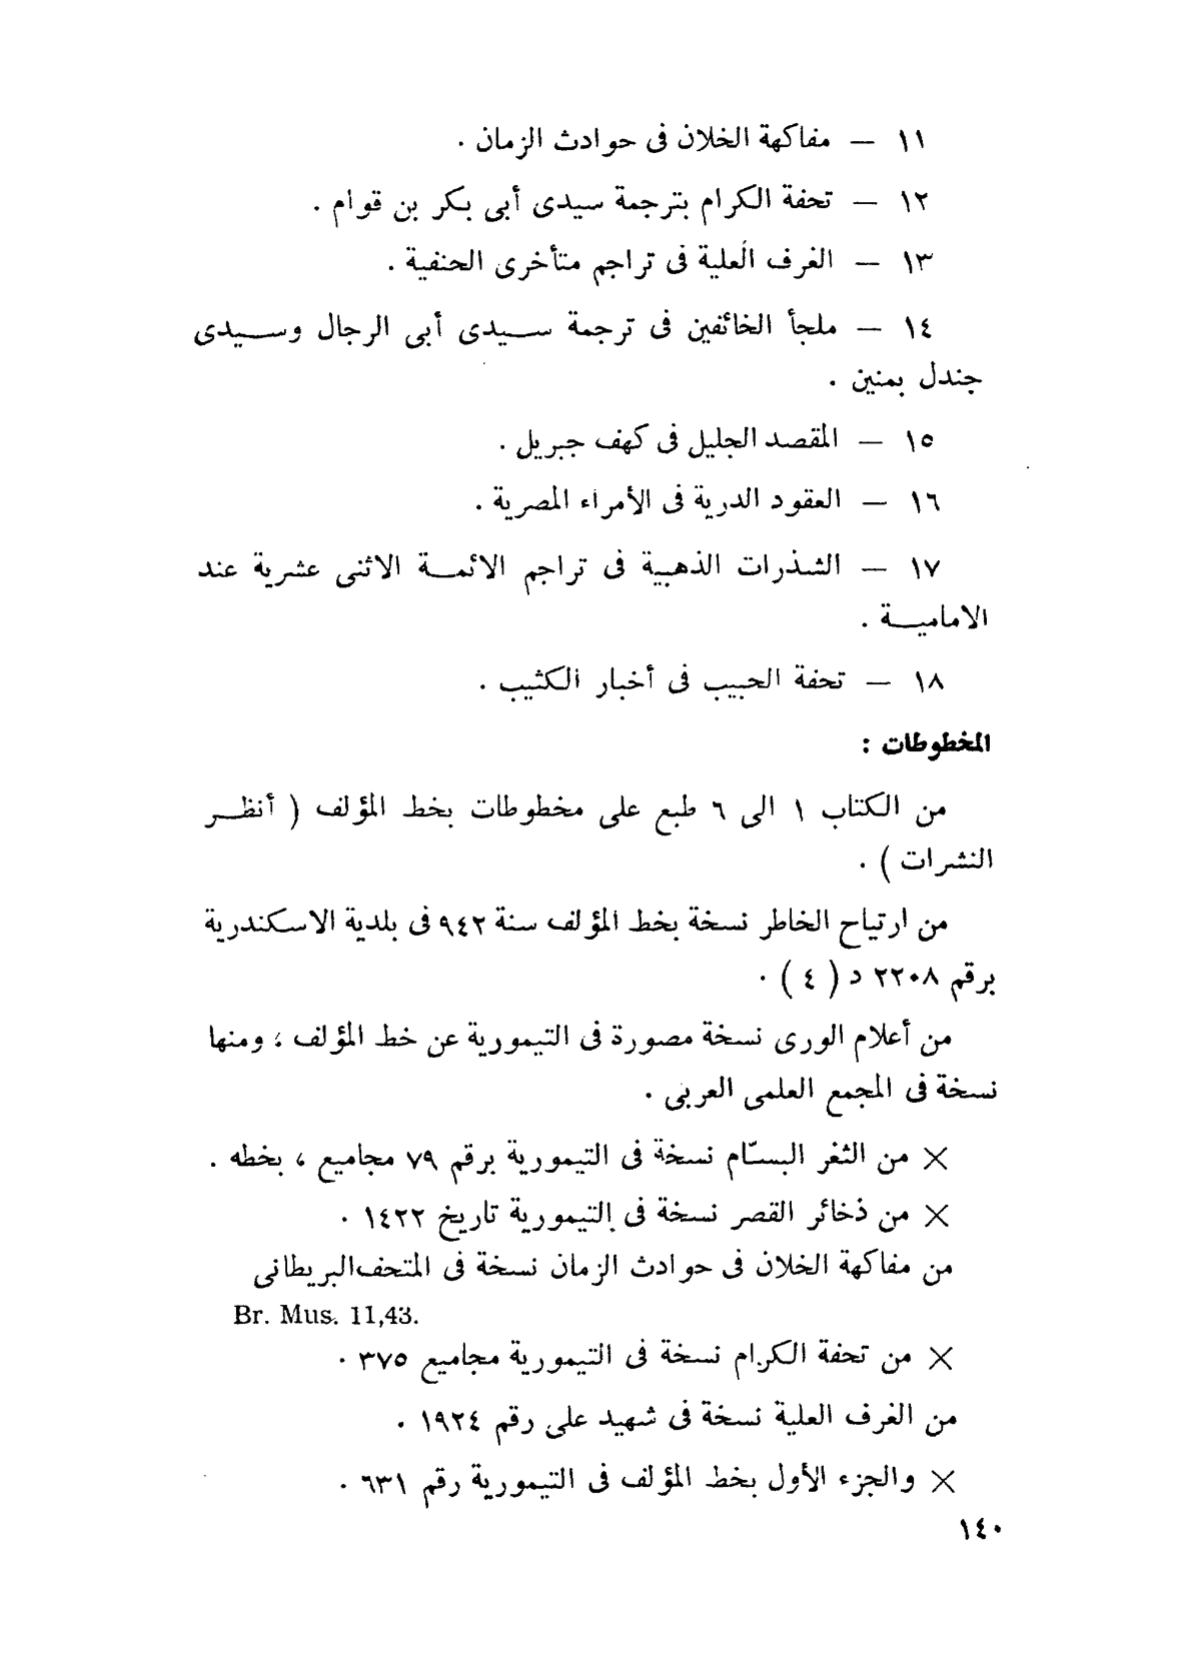 ١١ — مفاكهة الخلان فى حوادث الزمان .
١٢ — تحفة الكرام بترجمة سيدى أبى بكر بن قوام .
١٣ — الغرف العلية فى تراجم متأخرى الحنفية .
١٤ — ملجأ الخائفين فى ترجمة سـيدى أبى الرجال وسـيدى
جندل بمنين .
١٥ — المقصد الجليل فى كهف جبريل .
١٦ — العقود الدرية فى الأمراء المصرية .
١٧ — الشذرات الذهبية فى تراجم الائمـة الاثنى عشرية عند
الاماميـة .
١٨ — تحفة الحبيب فى أخبار الكثيب .
المخطوطات :
من الكتاب ١ الى ٦ طبع على مخطوطات بخط المؤلف ( أنظـر
النشرات ) .
من ارتياح الخاطر نسخة بخط المؤلف سنة ٩٤٢ فى بلدية الاسكندرية
برقم ٢٢٠٨ د ( ٤ ) .
من أعلام الورى نسخة مصورة فى التيمورية عن خط المؤلف ، ومنها
نسخة فى المجمع العلمى العربى .
× من الثغر البسّام نسخة فى التيمورية برقم ٧٩ مجاميع ، بخطه .
× من ذخائر القصر نسخة فى التيمورية تاريخ ١٤٢٢ .
من مفاكهة الخلان فى حوادث الزمان نسخة فى المتحف البريطانى
Br. Mus. 11,43.
× من تحفة الكرام نسخة فى التيمورية مجاميع ٣٧٥ .
من الغرف العلية نسخة فى شهيد على رقم ١٩٢٤ .
× والجزء الأول بخط المؤلف فى التيمورية رقم ٦٣١ .
١٤٠